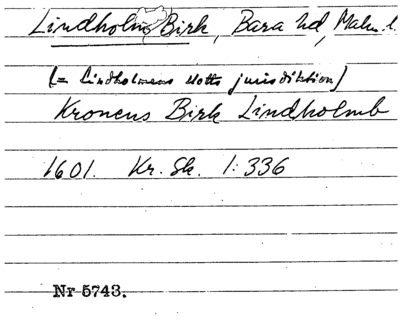 Lindholm Birk, Bara hd, Malm. l.
(= Lindholmens slotts jurisdiktion)
Kronens Birk Lindholmb
1601. Kr. Sk. 1:336
Nr 5743.